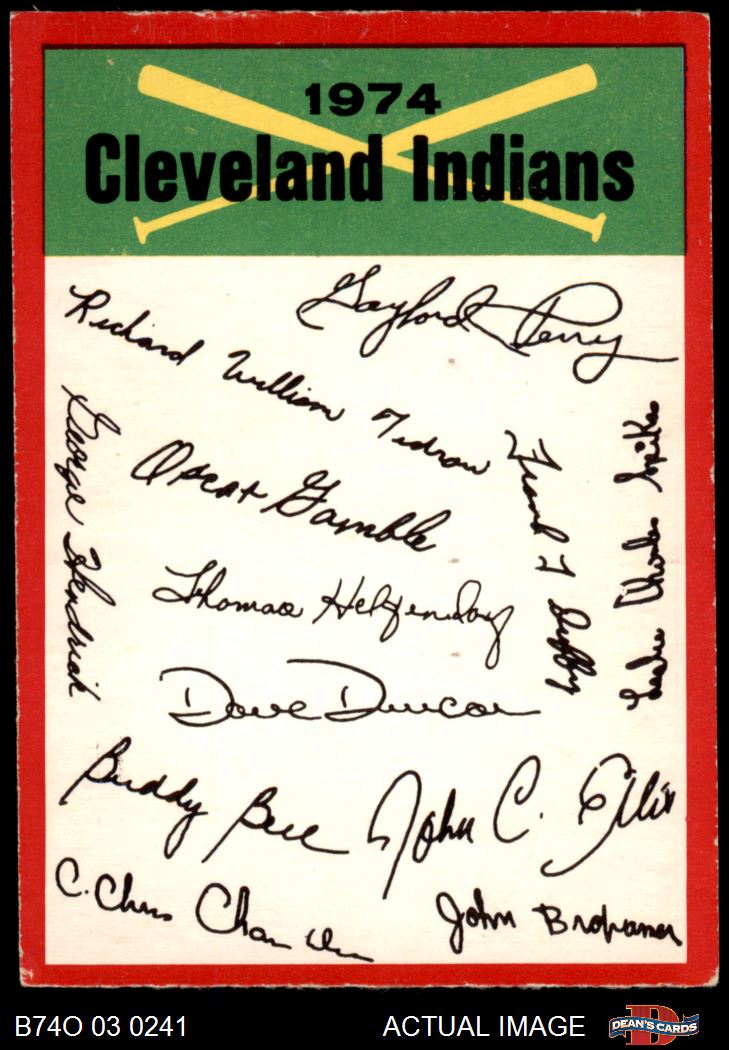 1974
Cleveland Indians
Gaylord Perry
Richard William Tidrow
George Hendrick
Oscar Gamble
Frank T Duffy
Leslie Charles Spikes
Thomas Helfendoy
Dave Duncan
Buddy Bell
John C. Ellis
C. Chris Cham
John Brohamer
B74O 03 0241
ACTUAL IMAGE
D
DEAN'S CARDS